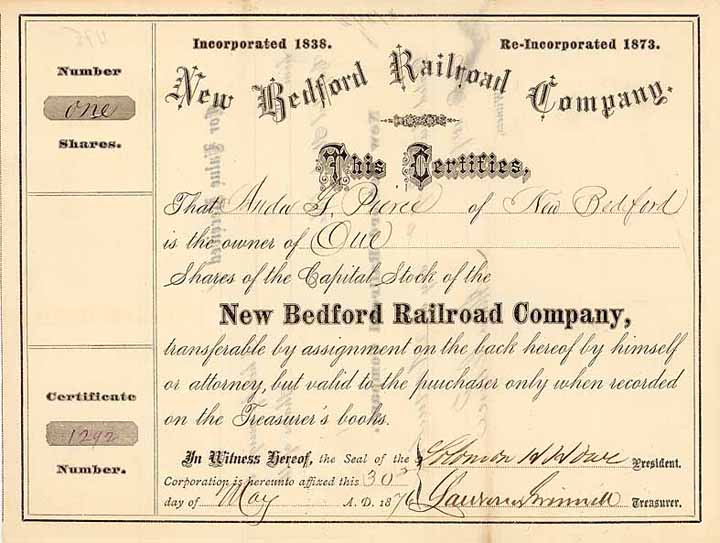 Number
One
Shares.
Certificate
1292
Number.
Incorporated 1838.
Re-Incorporated 1873.
New Bedford Railroad Company.
This Certifies,
That Andw G. Pierce of New Bedford
is the owner of One
Shares of the Capital Stock of the
New Bedford Railroad Company,
transferable by assignment on the back hereof by himself
or attorney, but valid to the purchaser only when recorded
on the Treasurer's books.
In Witness Hereof, the Seal of the
Corporation is hereunto affixed this 30
day of May A. D. 1876
Solomon H. Howe President.
Lawrence Grinnell Treasurer.